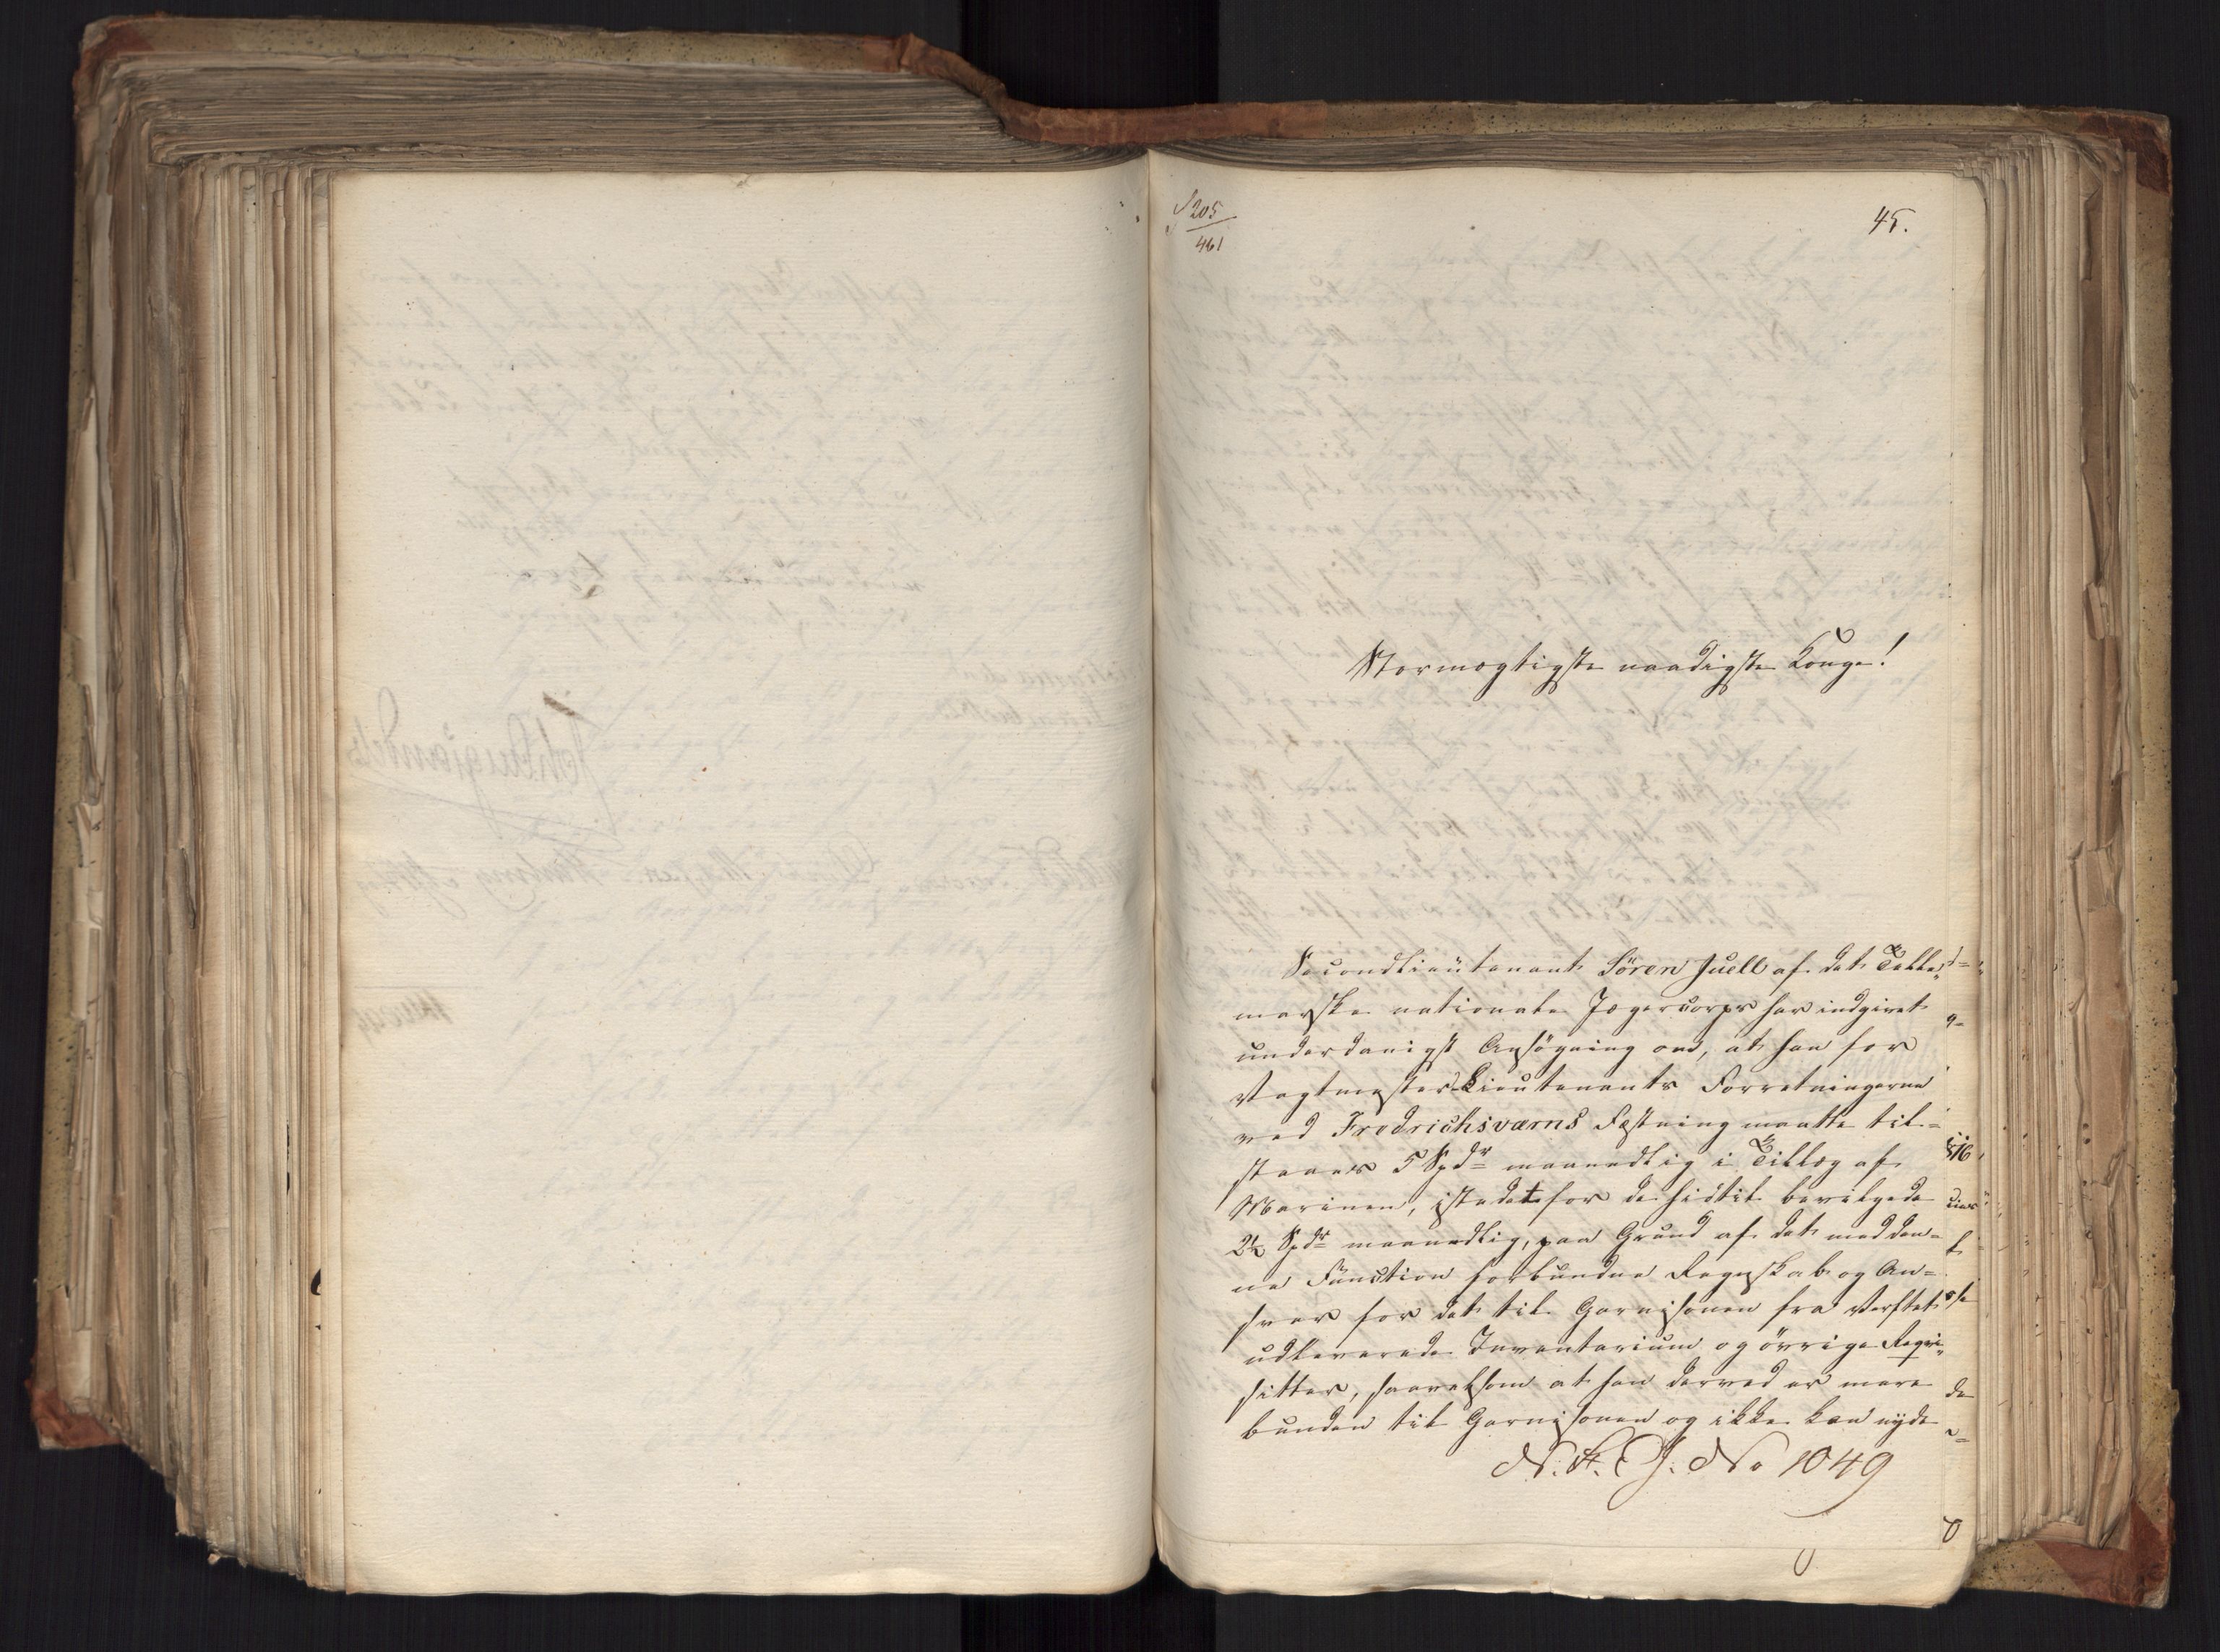 205
461
45.
Stormægtigste naadigste Konge!
Secondlieutenant Sören Juell af det Telle„
marske nationale Jægercorps har indgivet
underdanigst Ansögning om, at han for
Vagtmester-Lieutenants Forretningerne
ved Fredrichsværns Fæstning maatte til=
staaes 5 Spdr maanedlig i Tillæg af
Marinen, istedetfor de hidtil bevilgede
2½ Spdr maanedlig, paa Grund af det med den=
ne Function forbundne Regnskab og An=
svar for det til Garnisonen fra Verftet
udleverede Inventarium og övrige Reqvi„
sitter, saavelsom at han derved er mere
bunden til Garnisonen og ikke kan nyde
N. St. E. J. No 1049